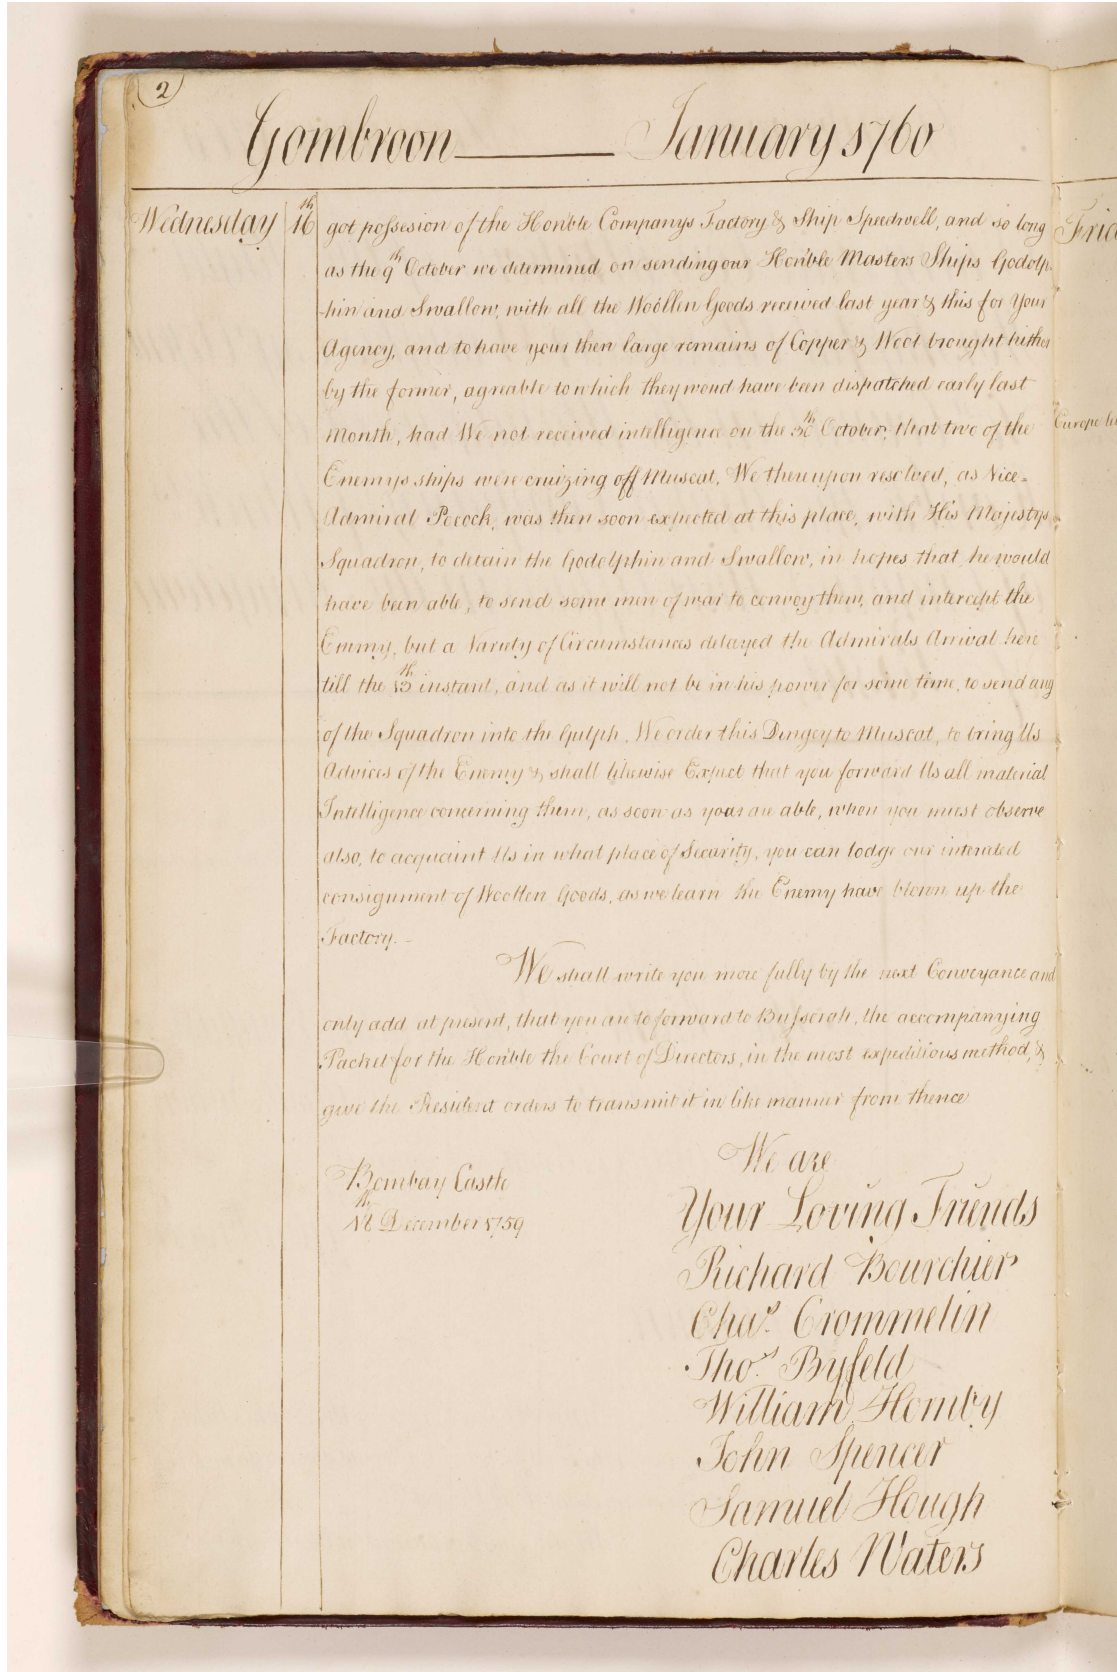 2
Gombroon January 1760
Wednesday 16th got possesion of the Honble Companys Factory & Ship Speedwell, and so long
as the 9th October we determined on sending our Honble Masters Ships Godolp-
hin and Swallow, with all the Woollen Goods received last year & this for Your
Agency, and to have your then large remains of Copper & Wool brought hither
by the former, agreable to which they woud have been dispatched early last
Month, had We not received intelligence on the October, that two of the
Enemys ships were cruizing off Muscat, We thereupon resolved, as Vice-
Admiral Pocock, was then soon expected at this place, with His Majestys
Squadron, to detain the Godolphin and Swallow, in hopes that he would
have been able, to send some men of war to convoy them, and intercept the
Enemy, but a Variety of Circumstances delayed the Admirals Arrival here
till the 13th instant, and as it will not be in his power for some time, to send any
of the Squadron into the Gulph, We order this Dingey to Muscat, to bring Us
Advices of the Enemy & shall likewise Expect that you forward Us all material
Intelligence concerning them, as soon as your are able, when you must observe
also, to acquaint Us in what place of Security, you can lodge our intended
consignment of Woollen Goods, as we learn the Enemy have blown up the
Factory.
We shall write you more fully by the next Conveyance and
only add at present, that you are to forward to Bussorah, the accompanying
Packet for the Honble the Court of Directors, in the most expeditious method, &
give the Resident orders to transmit it in like manner from thence
We are
Bombay Castle
December 1759
Your Loving Friends
Richard Bourchier
Chas. Crommelin
Thos. Byfeld
William Hornby
John Spencer
Samuel Hough
Charles Waters